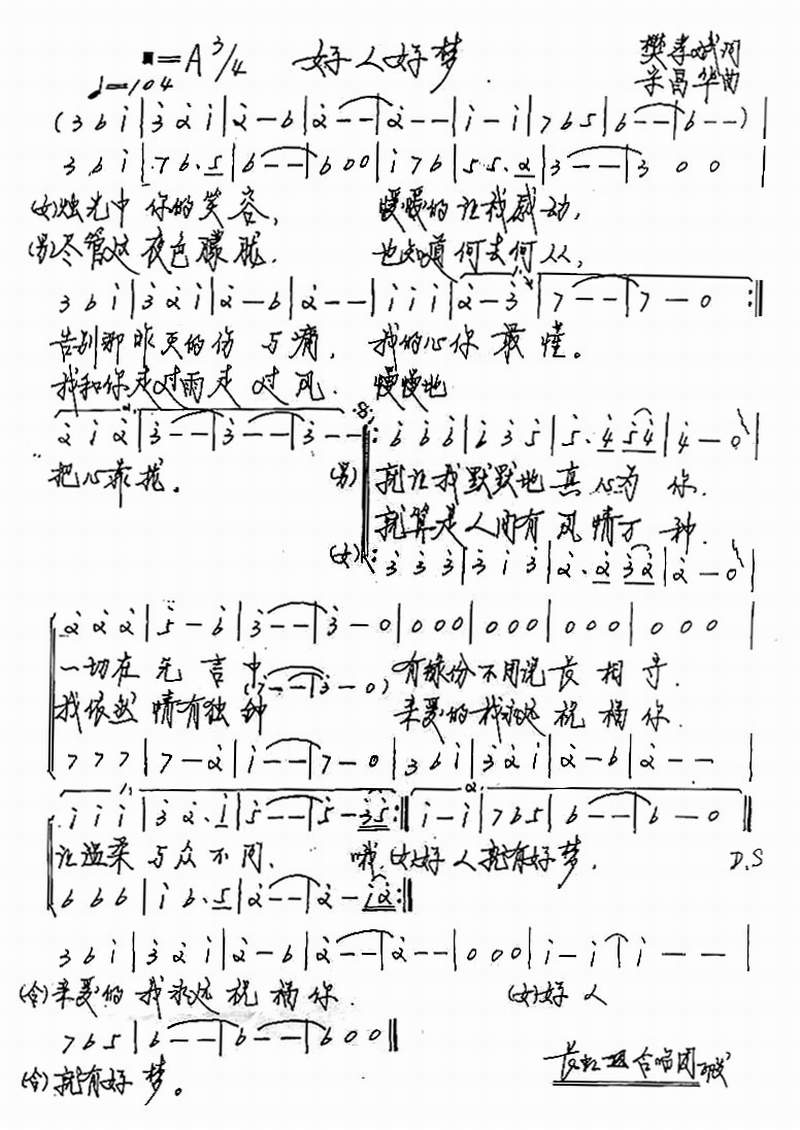 =A 3/4 好人好梦 樊孝斌词
♩=104 宋昌华曲
(3 6 i | 3 2 i | 2 - 6 | 2 - - | 2 - - | i - i | 7 6 5 | 6 - - | 6 - -) |
3 6 i | 7 6. 5 | 6 - - | 6 0 0 | i 7 6 | 5 5. 2 | 3 - - | 3 0 0 |
(女)烛光中 你的笑容, 暖暖的让我感动,
(男)尽管这夜色朦胧. 也知道何去何从,
3 6 i | 3 2 i | 2 - 6 | 2 - - | i i i | 2 - 3 | 7 - - | 7 - 0 :||
告别那昨天的伤与痛, 我的心你最懂。
我和你走过雨走过风. 慢慢地
2 i 2 | 3 - - | 3 - - | 3 - - ||: 6 6 6 | 6 3 5 | 5. 4 5 4 | 4 - 0 |
把心靠拢。 (男) 就让我默默地真心为你.
就算是人间有风情万种.
(女) : 3 3 3 | 3 i 3 | 2. 2 3 2 | 2 - 0 |
2 2 2 | 5 - 6 | 3 - - | 3 - 0 | 0 0 0 | 0 0 0 | 0 0 0 | 0 0 0 |
一切在无言中 (7 - - | 3 - 0) 有缘份不用说长相守.
我依然情有独钟 亲爱的我永远祝福你.
7 7 7 | 7 - 2 | i - - | 7 - 0 | 3 6 i | 3 2 i | 2 - 6 | 2 - - |
1. i i i | 3 2. i | 5 - - | 5 - 3 5 :|| 2. i - i | 7 6 5 | 6 - - | 6 - 0 ||
让温柔与众不同. 哦.(女)好人就有好梦. D.S
6 6 6 | i 6. 5 | 2 - - | 2 - i 2 :||
3 6 i | 3 2 i | 2 - 6 | 2 - - | 2 - - | 0 0 0 | i - i | i - - |
(合)亲爱的我永远祝福你. (女)好人
7 6 5 | 6 - - | 6 - - | 6 0 0 ||
(合)就有好梦。
合唱团